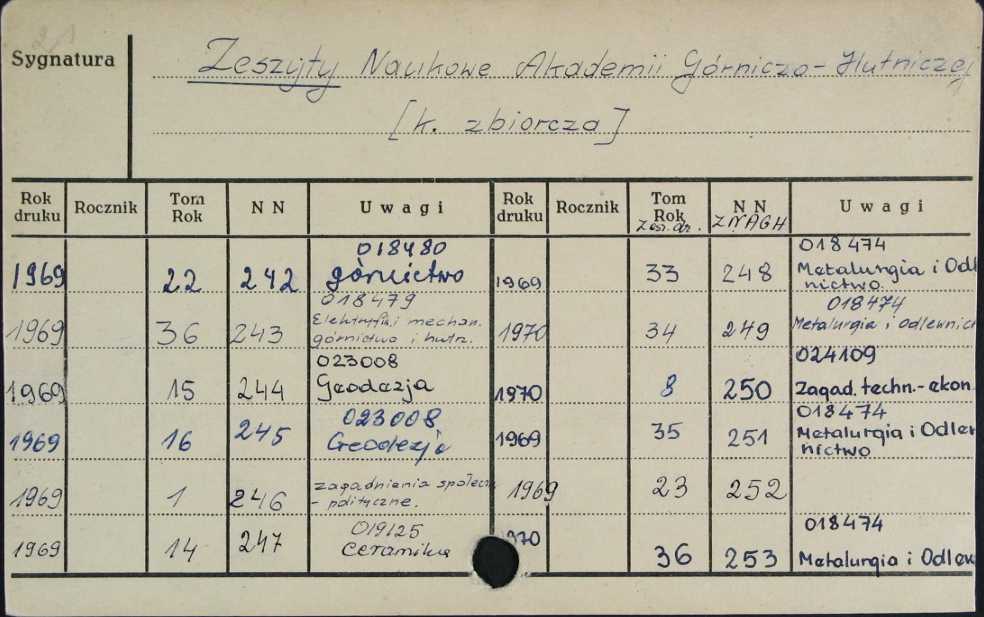 Sygnatura
Zeszyty Naukowe Akademii Górniczo-Hutniczej
[k. zbiorcza]
Rok druku Rocznik Tom Rok NN Uwagi Rok druku Rocznik Tom Rok zesz. dz. NN ZNAGH Uwagi
018480 018474
1969 22 242 górnictwo 1969 33 248 Metalurgia i Odlenictwo
018479 018474
1969 36 243 Elektryfik. i mechan. górnictwo i hutn. 1970 34 249 Metalurgia i Odlewnict
023008 024109
1969 15 244 Geodezja 1970 8 250 Zagad. techn.-ekon.
023008 018474
1969 16 245 Geodezja 1969 35 251 Metalurgia i Odlewnictwo
1969 1 246 zagadnienia społecz - polityczne. 1969 23 252
019125 018474
1969 14 247 Ceramika 1970 36 253 Metalurgia i Odlew